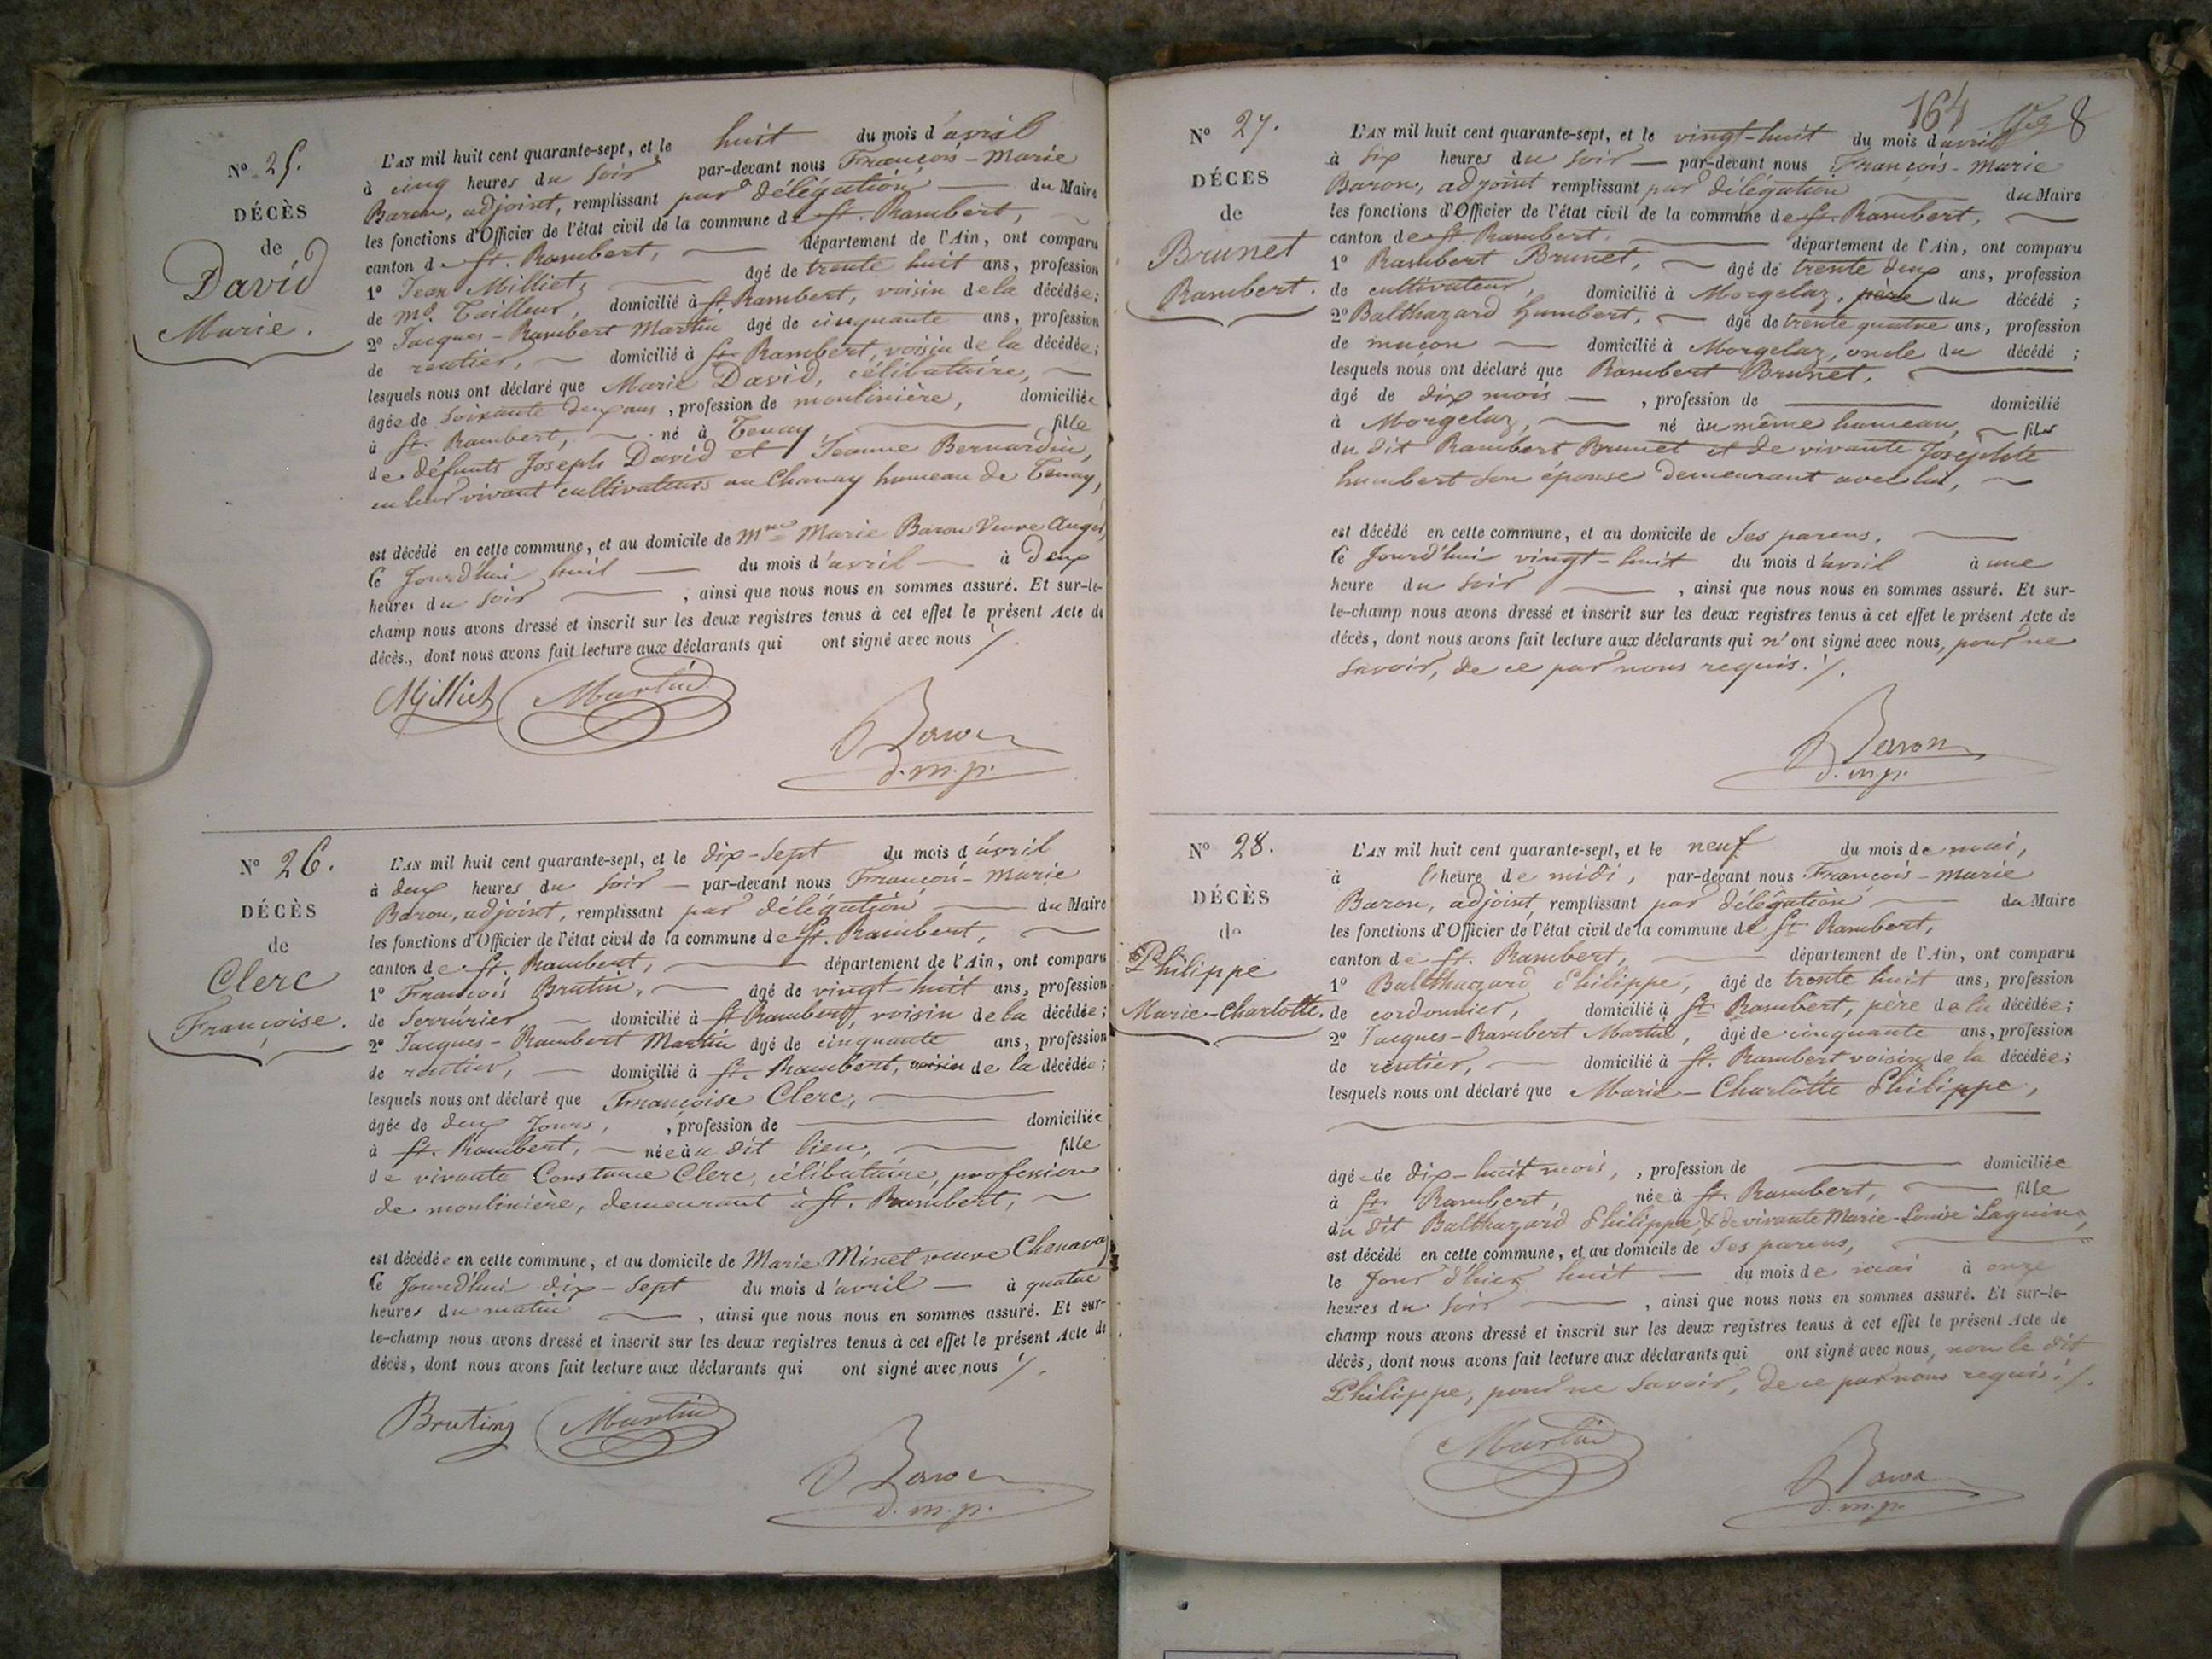 N° 25.
DÉCÈS
de
David
Marie.
L'AN mil huit cent quarante-sept, et le huit du mois d'avril
à cinq heures du soir par-devant nous François-Marie
Baron, adjoint, remplissant par délégation du Maire
les fonctions d'Officier de l'état civil de la commune de St. Rambert,
canton de St. Rambert, département de l'Ain, ont comparu
1° Jean Milliet, âgé de trente huit ans, profession
de md. Tailleur, domicilié à St Rambert, voisin de la décédée;
2° Jacques-Rambert Martin âgé de cinquante ans, profession
de rentier, domicilié à St. Rambert, voisin de la décédée;
lesquels nous ont déclaré que Marie David, célibataire,
âgée de soixante deux ans, profession de moulinière, domiciliée
à St. Rambert, né à Tenay, fille
de défunts Joseph David et Jeanne Bernardin,
en leur vivant cultivateurs au Chanay hameau de Tenay,
est décédé en cette commune, et au domicile de Mme Marie Baron Veuve Auger,
le jourd'hui huit du mois d'avril à deux
heures du soir, ainsi que nous nous en sommes assuré. Et sur-le-
champ nous avons dressé et inscrit sur les deux registres tenus à cet effet le présent Acte de
décès, dont nous avons fait lecture aux déclarants qui ont signé avec nous /.
Milliet Martin
Baron
d.m.p.
N° 26.
DÉCÈS
de
Clerc
Françoise.
L'AN mil huit cent quarante-sept, et le dix-sept du mois d'avril
à deux heures du soir par-devant nous François-Marie
Baron, adjoint, remplissant par délégation du Maire
les fonctions d'Officier de l'état civil de la commune de St. Rambert,
canton de St. Rambert, département de l'Ain, ont comparu
1° François Brutin, âgé de vingt-huit ans, profession
de Serrurier, domicilié à St Rambert, voisin de la décédée;
2° Jacques-Rambert Martin âgé de cinquante ans, profession
de rentier, domicilié à St. Rambert, voisin de la décédée;
lesquels nous ont déclaré que Françoise Clerc,
âgée de deux jours, profession de domiciliée
à St. Rambert, née au dit lieu, fille
de vivante Constance Clerc, célibataire, profession
de moulinière, demeurant à St. Rambert,
est décédée en cette commune, et au domicile de Marie Minet veuve Chenavaz
le jourd'hui dix-sept du mois d'avril à quatre
heures du matin, ainsi que nous nous en sommes assuré. Et sur-
le-champ nous avons dressé et inscrit sur les deux registres tenus à cet effet le présent Acte de
décès, dont nous avons fait lecture aux déclarants qui ont signé avec nous /.
Brutin Martin
Baron
d.m.p.
164
8
N° 27.
DÉCÈS
de
Brunet
Rambert.
L'AN mil huit cent quarante-sept, et le vingt-huit du mois d'avril
à six heures du soir par-devant nous François-Marie
Baron, adjoint remplissant par délégation du Maire
les fonctions d'Officier de l'état civil de la commune de St. Rambert,
canton de St. Rambert, département de l'Ain, ont comparu
1° Rambert Brunet, âgé de trente deux ans, profession
de cultivateur, domicilié à Morgelaz, père du décédé;
2° Balthazard humbert, âgé de trente quatre ans, profession
de maçon domicilié à Morgelaz, oncle du décédé;
lesquels nous ont déclaré que Rambert Brunet,
âgé de dix mois, profession de domicilié
à Morgelaz, né au même hameau, fils
du dit Rambert Brunet et de vivante Josephte
humbert son épouse demeurant avec lui,
est décédé en cette commune, et au domicile de Ses parens,
le jourd'hui vingt-huit du mois d'avril à une
heure du soir, ainsi que nous nous en sommes assuré. Et sur-
le-champ nous avons dressé et inscrit sur les deux registres tenus à cet effet le présent Acte de
décès, dont nous avons fait lecture aux déclarants qui n'ont signé avec nous, pour ne
savoir, de ce par nous requis. /.
Baron
d.m.p.
N° 28.
DÉCÈS
de
Philippe
Marie-Charlotte.
L'AN mil huit cent quarante-sept, et le neuf du mois de mai,
à l'heure de midi, par-devant nous François-Marie
Baron, adjoint remplissant par délégation du Maire
les fonctions d'Officier de l'état civil de la commune de St Rambert,
canton de St. Rambert, département de l'Ain, ont comparu
1° Balthazard Philippe, âgé de trente huit ans, profession
de cordonnier, domicilié à St Rambert, père de la décédée;
2° Jacques-Rambert Martin, âgé de cinquante ans, profession
de rentier, domicilié à St. Rambert voisin de la décédée;
lesquels nous ont déclaré que Marie-Charlotte Philippe,
âgée de dix-huit mois, profession de domiciliée
à St. Rambert, née à St. Rambert, fille
du dit Balthazard Philippe, & de vivante Marie-Louise
est décédé en cette commune, et au domicile de Ses parens,
le jour d'hier huit du mois de mai à onze
heures du soir, ainsi que nous nous en sommes assuré. Et sur-le-
champ nous avons dressé et inscrit sur les deux registres tenus à cet effet le présent Acte de
décès, dont nous avons fait lecture aux déclarants qui ont signé avec nous, non le dit
Philippe, pour ne savoir, de ce par nous requis. /.
Martin
Baron
d.m.p.